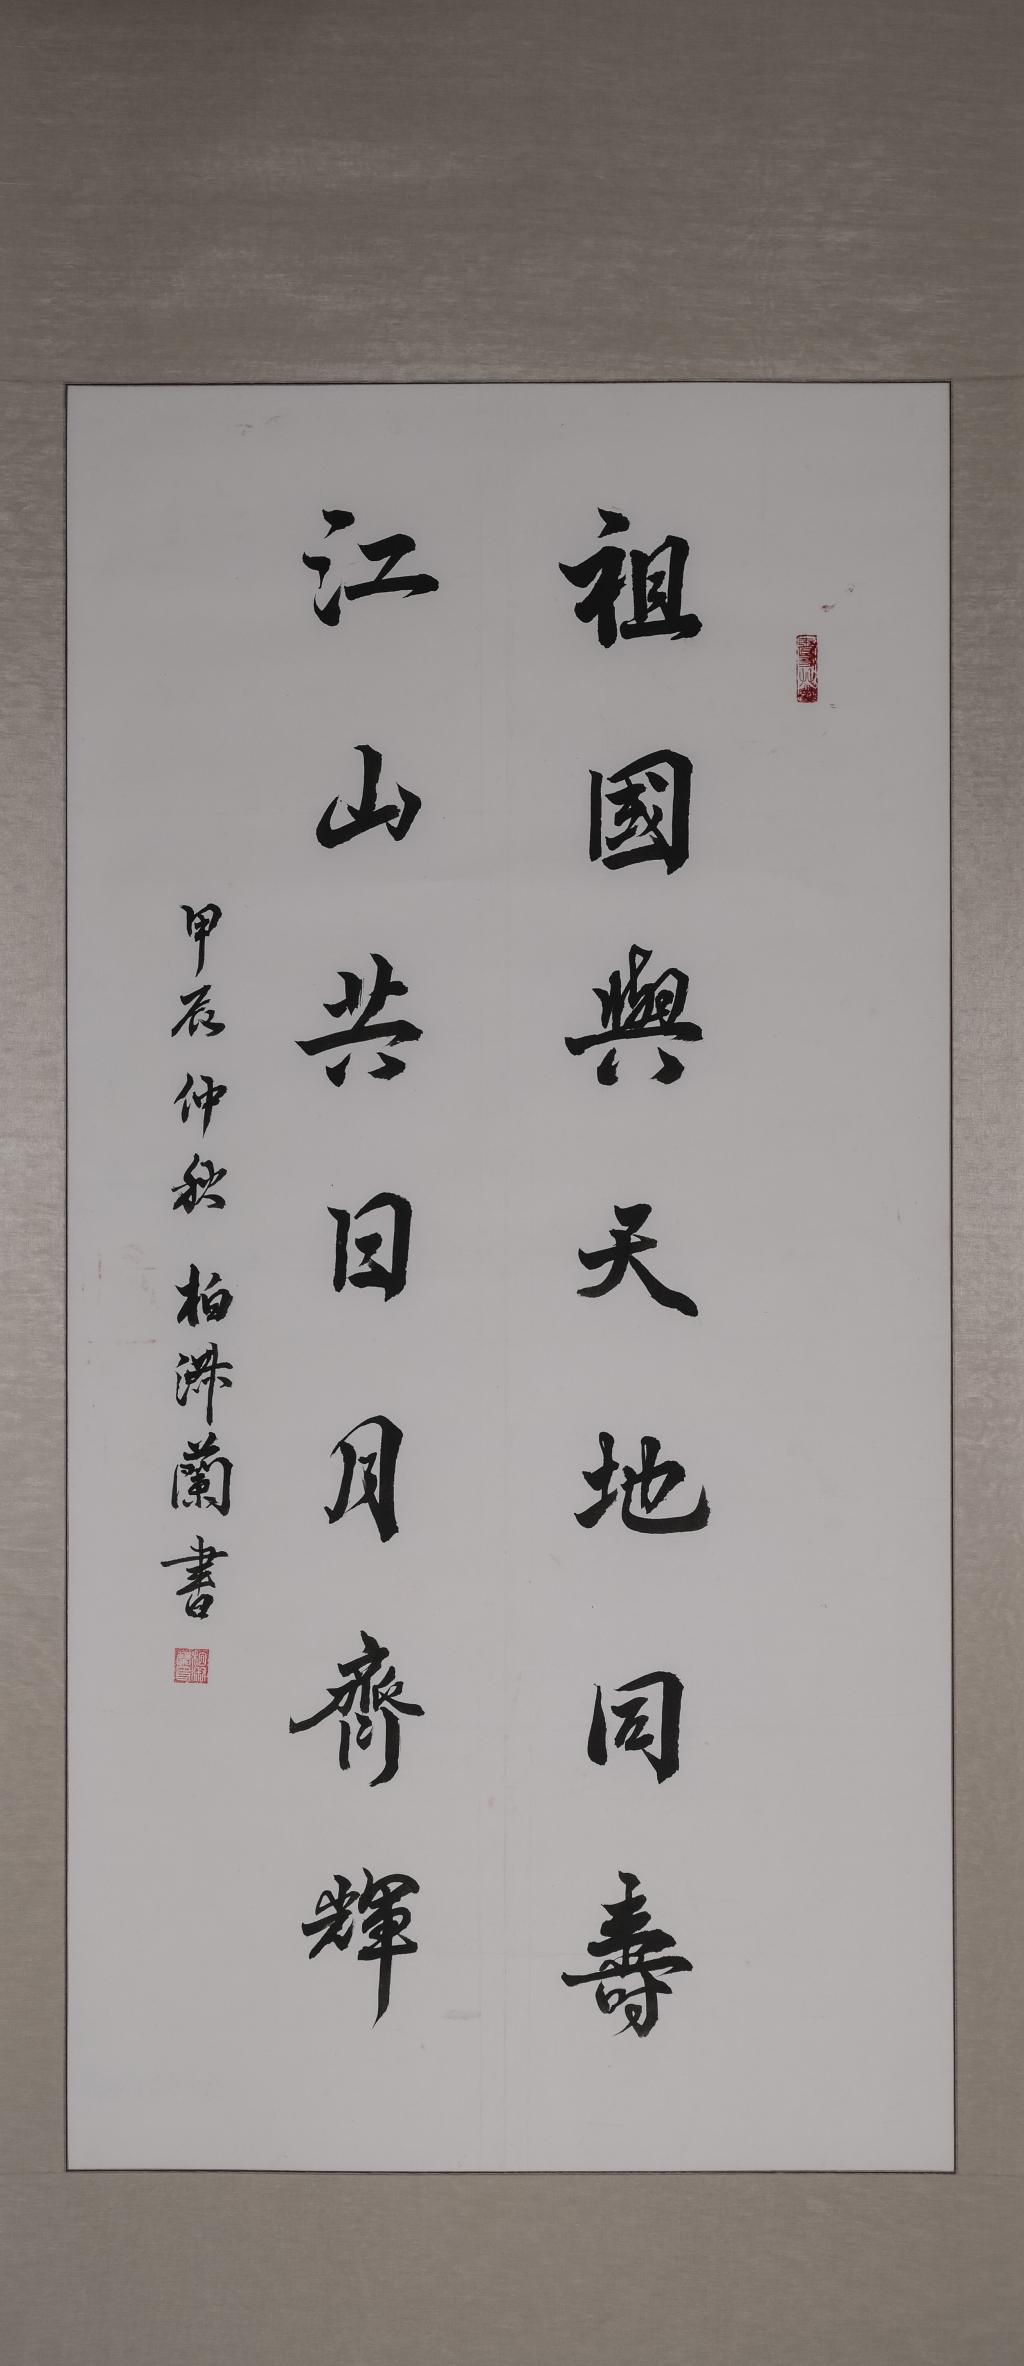 祖國與天地同壽
江山共日月齊輝
甲辰仲秋 柏淑蘭書